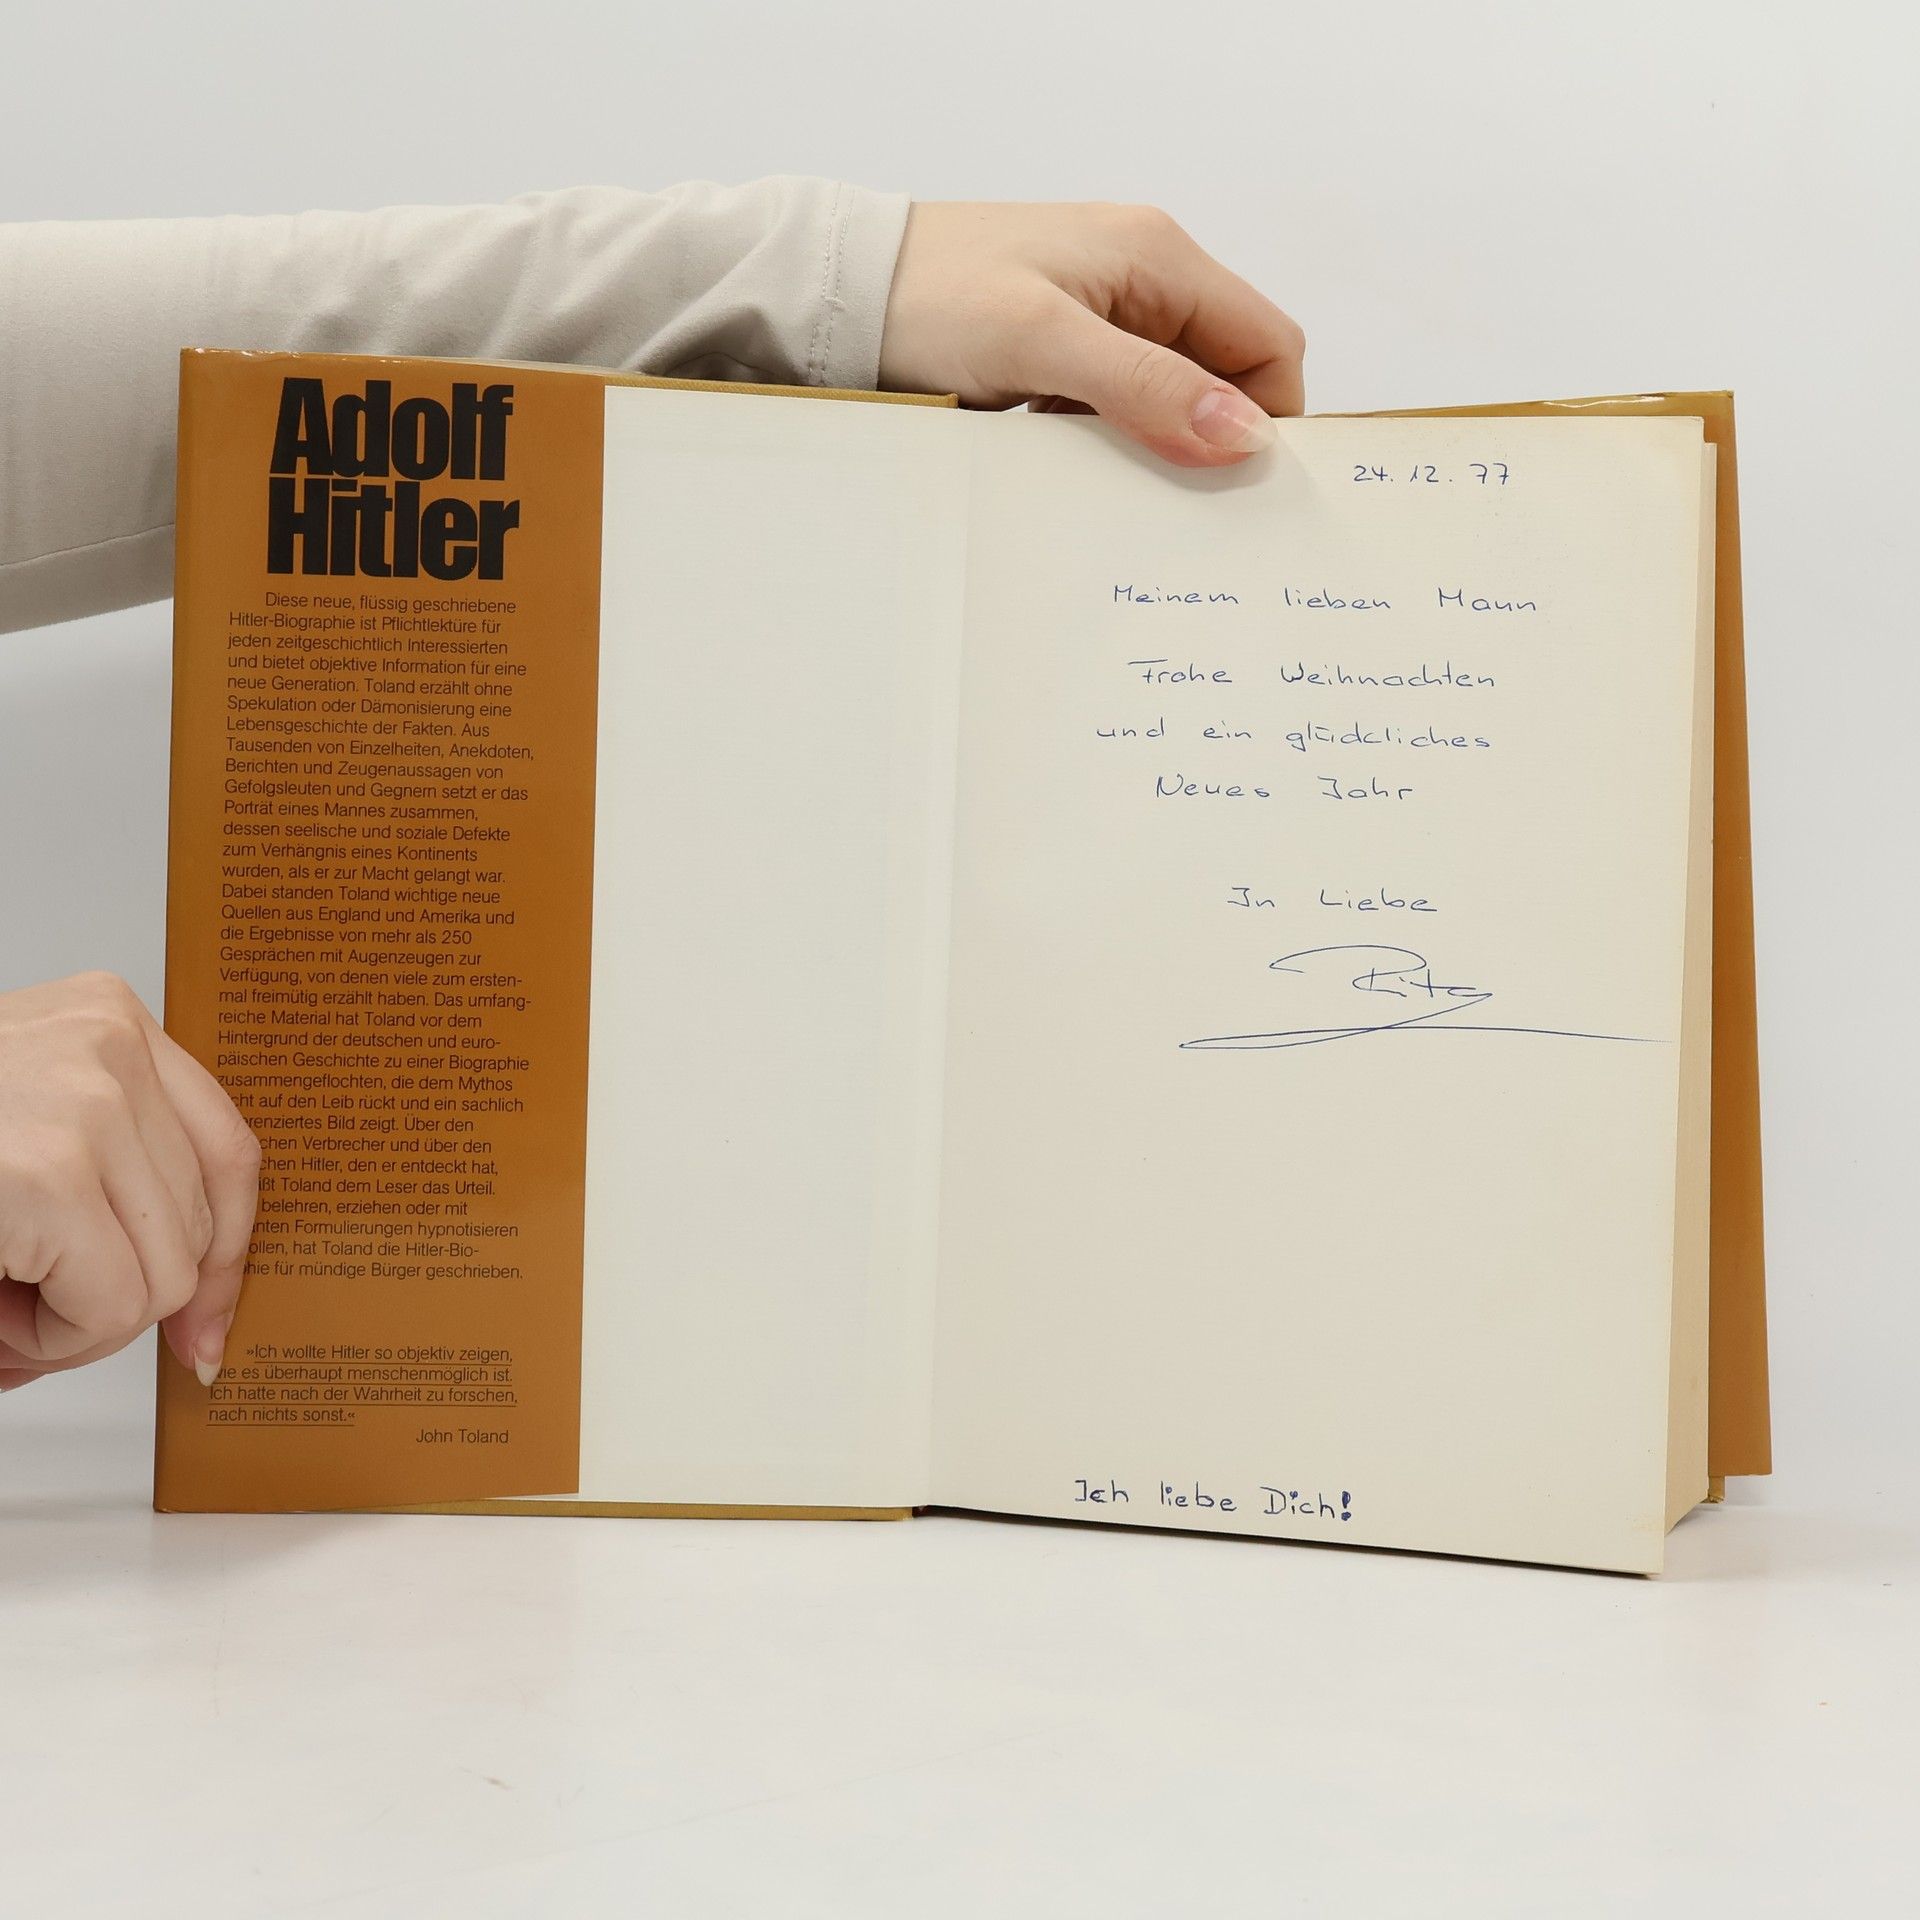 Adolf
Hitler
Diese neue, flüssig geschriebene
Hitler-Biographie ist Pflichtlektüre für
jeden zeitgeschichtlich Interessierten
und bietet objektive Information für eine
neue Generation. Toland erzählt ohne
Spekulation oder Dämonisierung eine
Lebensgeschichte der Fakten. Aus
Tausenden von Einzelheiten, Anekdoten,
Berichten und Zeugenaussagen von
Gefolgsleuten und Gegnern setzt er das
Porträt eines Mannes zusammen,
dessen seelische und soziale Defekte
zum Verhängnis eines Kontinents
wurden, als er zur Macht gelangt war.
Dabei standen Toland wichtige neue
Quellen aus England und Amerika und
die Ergebnisse von mehr als 250
Gesprächen mit Augenzeugen zur
Verfügung, von denen viele zum ersten-
mal freimütig erzählt haben. Das umfang-
reiche Material hat Toland vor dem
Hintergrund der deutschen und euro-
päischen Geschichte zu einer Biographie
zusammengeflochten, die dem Mythos
auf den Leib rückt und ein sachlich
Bild zeigt. Über den
Verbrecher und über den
Hitler, den er entdeckt hat,
Toland dem Leser das Urteil.
belehren, erziehen oder mit
Formulierungen hypnotisieren
hat Toland die Hitler-Bio-
für mündige Bürger geschrieben.
»Ich wollte Hitler so objektiv zeigen,
wie es überhaupt menschenmöglich ist.
Ich hatte nach der Wahrheit zu forschen,
nach nichts sonst.«
John Toland
24. 12. 77
Meinem lieben Mann
Frohe Weihnachten
und ein glückliches
Neues Jahr
In Liebe
Rita
Ich liebe Dich!